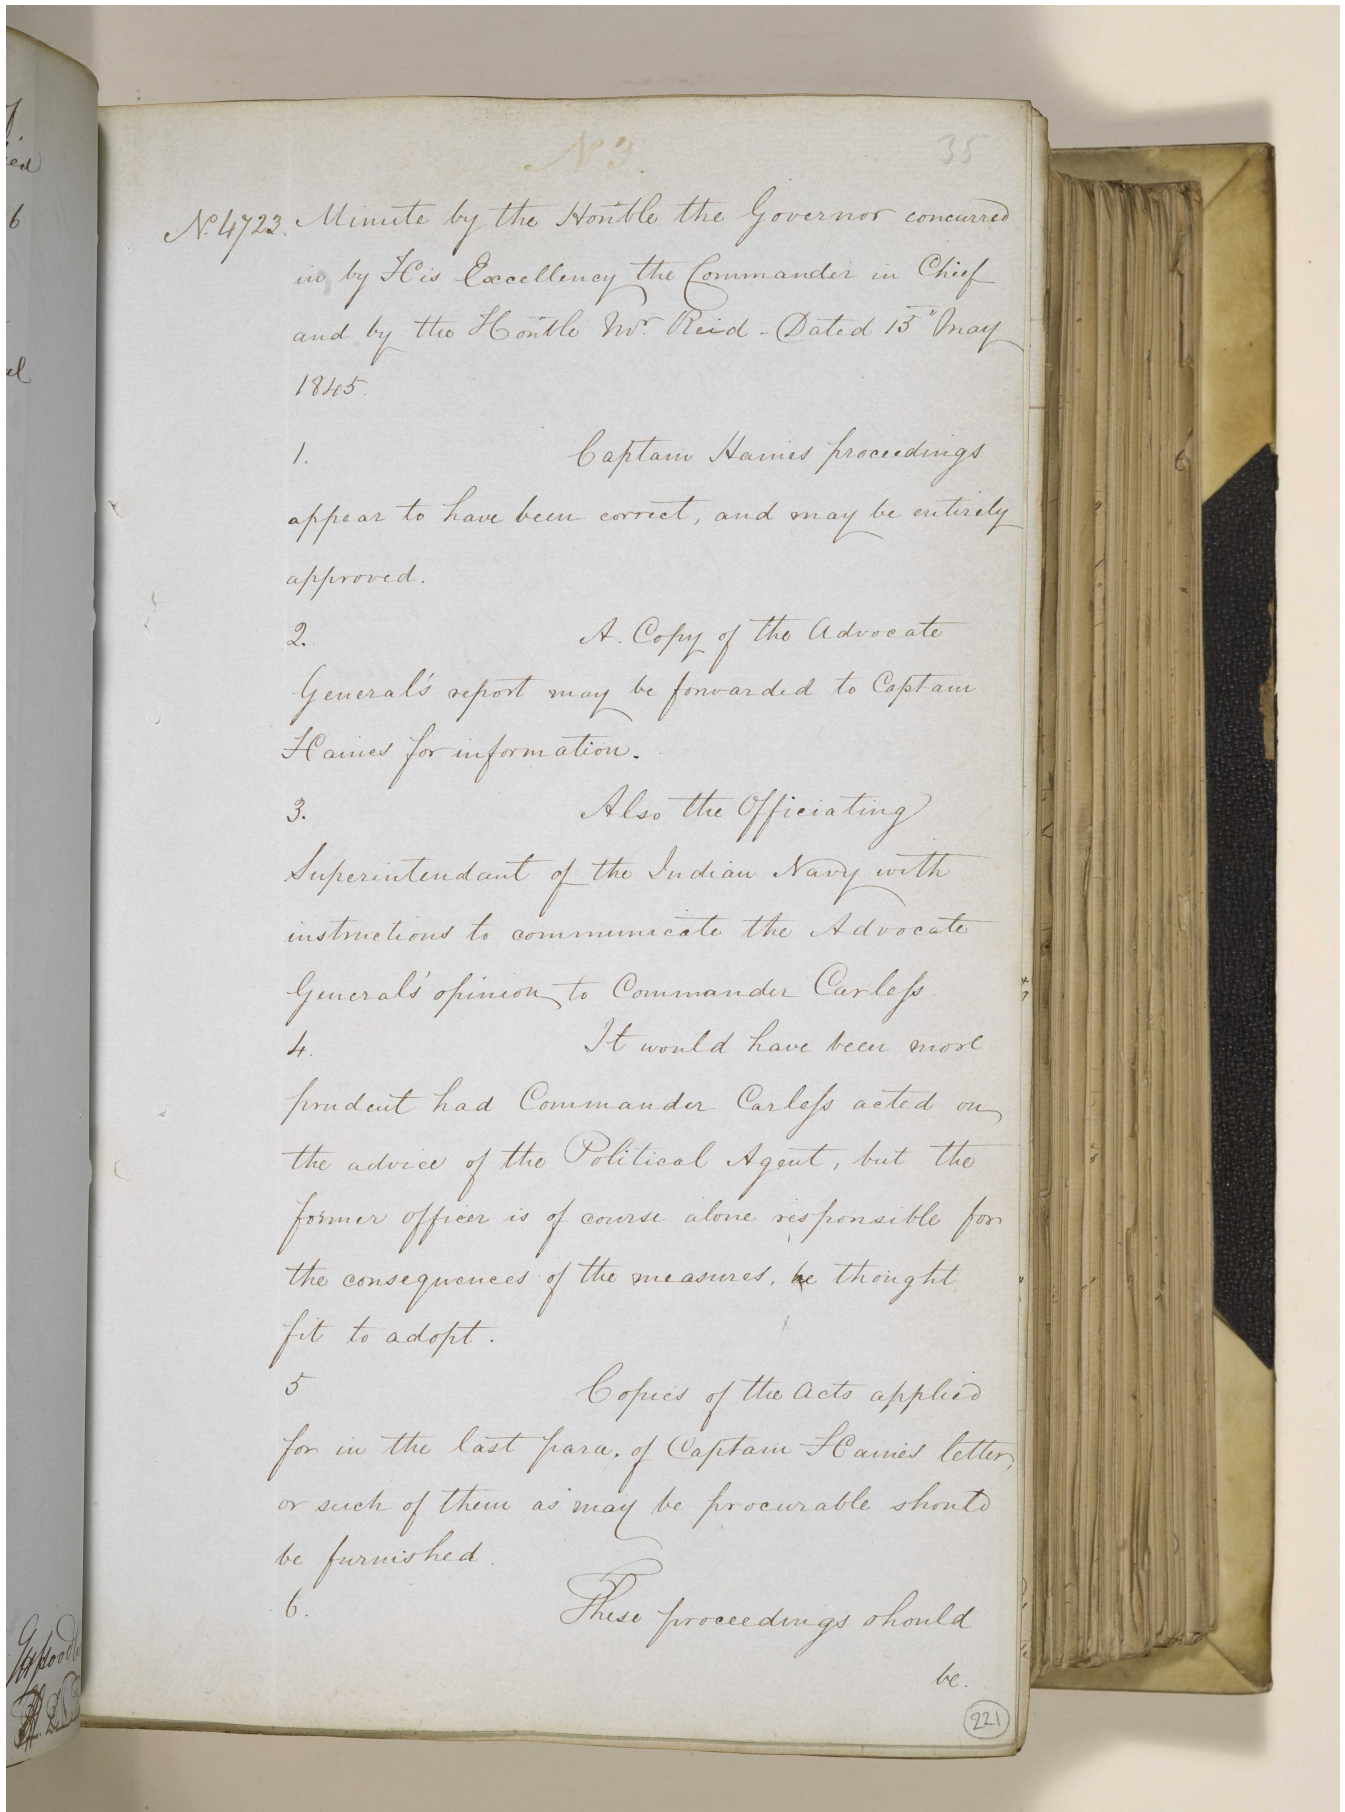 N 3.
35
No. 4723. Minute by the Honble the Governor concurred
in by His Excellency the Commander in Chief
and by the Honble Mr. Reid - Dated 15" May
1845.
1. Captain Haines proceedings
appear to have been correct, and may be entirely
approved.
2. A. Copy of the Advocate
General's report may be forwarded to Captain
Haines for information.
3. Also the Officiating
Superintendant of the Indian Navy with
instructions to communicate the Advocate
General's opinion to Commander Carleſs
4. It would have been more
prudent had Commander Carleſs acted on
the advice of the Political Agent, but the
former officer is of course alone responsible for
the consequences of the measures, he thought
fit to adopt.
5 Copies of the Acts applied
for in the last para. of Captain Haines' letter,
or such of them as may be procurable should
be furnished.
6. These proceedings should
be.
221